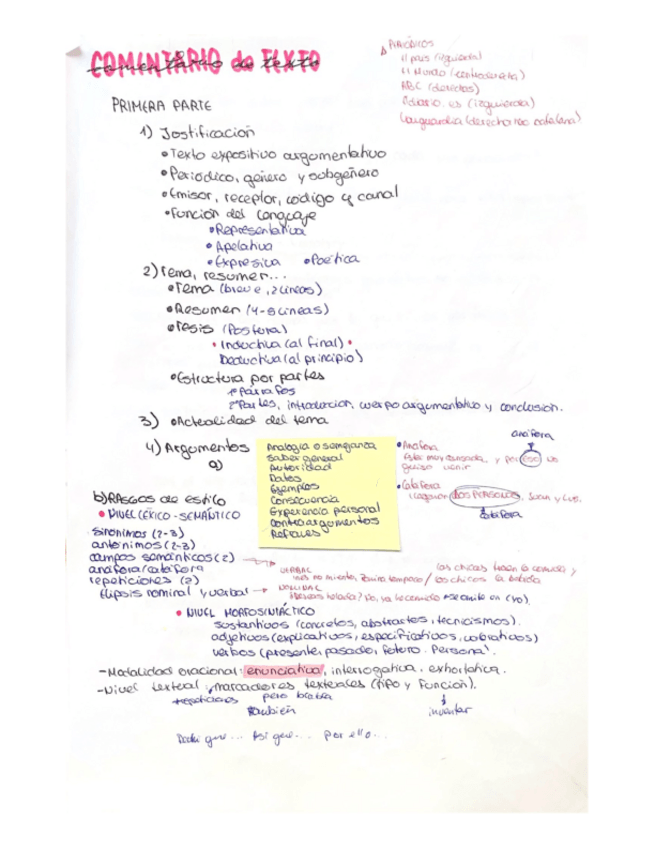 COMENTARIO de TEXTO
comentario de texto
PERIÓDICOS
El país (izquierda)
El Mundo (centroderecha)
ABC (derechas)
eldiario.es (izquierda)
Vanguardia (derecha catalana)
PRIMERA PARTE
1) Jostificación
• Texto expositivo argumentativo
• Periódico, género y subgénero
• Emisor, receptor, código y canal
• Función del lenguaje
• Representativa
• Apelativa
• Expresiva • Poética
2) Tema, resumen...
• Tema (breve, 2 líneas)
• Resumen (4-8 líneas)
• Tesis (Postura)
• Inductiva (al final) •
Deductiva (al principio)
• Estructura por partes
1º Párrafos
2º Partes, introducción, cuerpo argumentativo y conclusión.
3) • Actualidad del tema
4) Argumentos
a)
Analogía o semejanza
Saber general
Autoridad
Datos
Ejemplos
Consecuencia
Experiencia personal
Contraargumentos
Refranes
anáfora
• Anáfora
Ester muy cansada, y por eso no
quiso venir
• Catáfora
Llegaron dos personas, Juan y Luis.
catáfora
b) RASGOS de estilo
• NIVEL LÉXICO-SEMÁNTICO
sinónimos (2-3)
antónimos (2-3)
campos semánticos (2)
anáfora/catáfora
repeticiones (2)
Elipsis nominal y verbal →
VERBAL
Inés no miente, Zaira tampoco / los chicos la bebida
las chicas traen la comida y
NOMINAL
¿Deseas helado? No, ya he comido *se omite en (yo).
• NIVEL MORFOSINTÁCTICO
sustantivos (concretos, abstractos, tecnicismos).
adjetivos (explicativos, especificativos, valorativos)
verbos (presente, pasado, futuro. Persona).
-Modalidad oracional: enunciativa, interrogativa. exhortativa.
-Nivel textual: marcadores textuales (tipo y función).
repeticiones pero
también
inventar
Decir que... Así que... por ello...